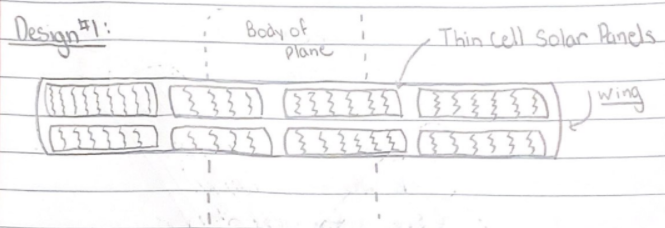 Design #1:
Body of
plane
Thin Cell Solar Panels
wing